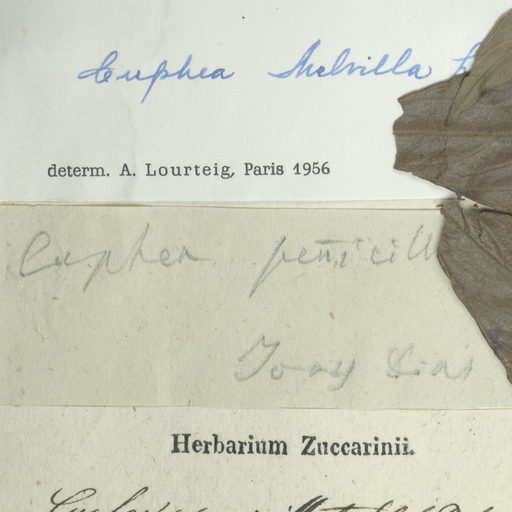 Cuphea Melvilla L
determ. A. Lourteig, Paris 1956
Cuphea penicill
Herbarium Zuccarinii.